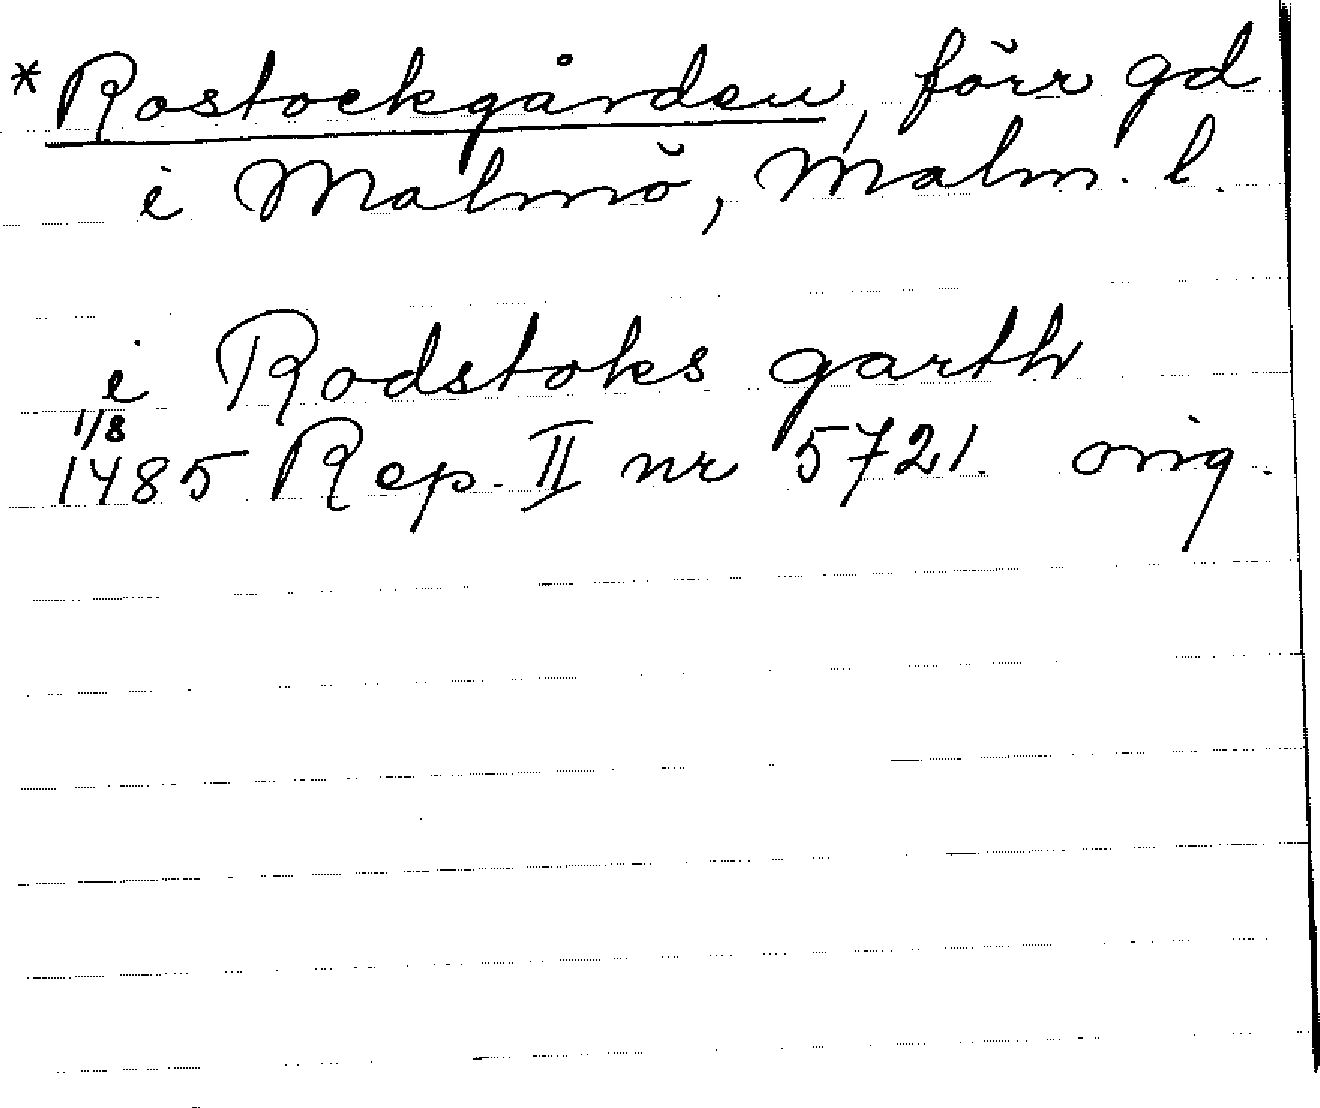 * Rostockgården, förr gd
i Malmö, Malm. l.
i Rodstoks garth
1/8
1485 Rep. II nr 5721. orig.